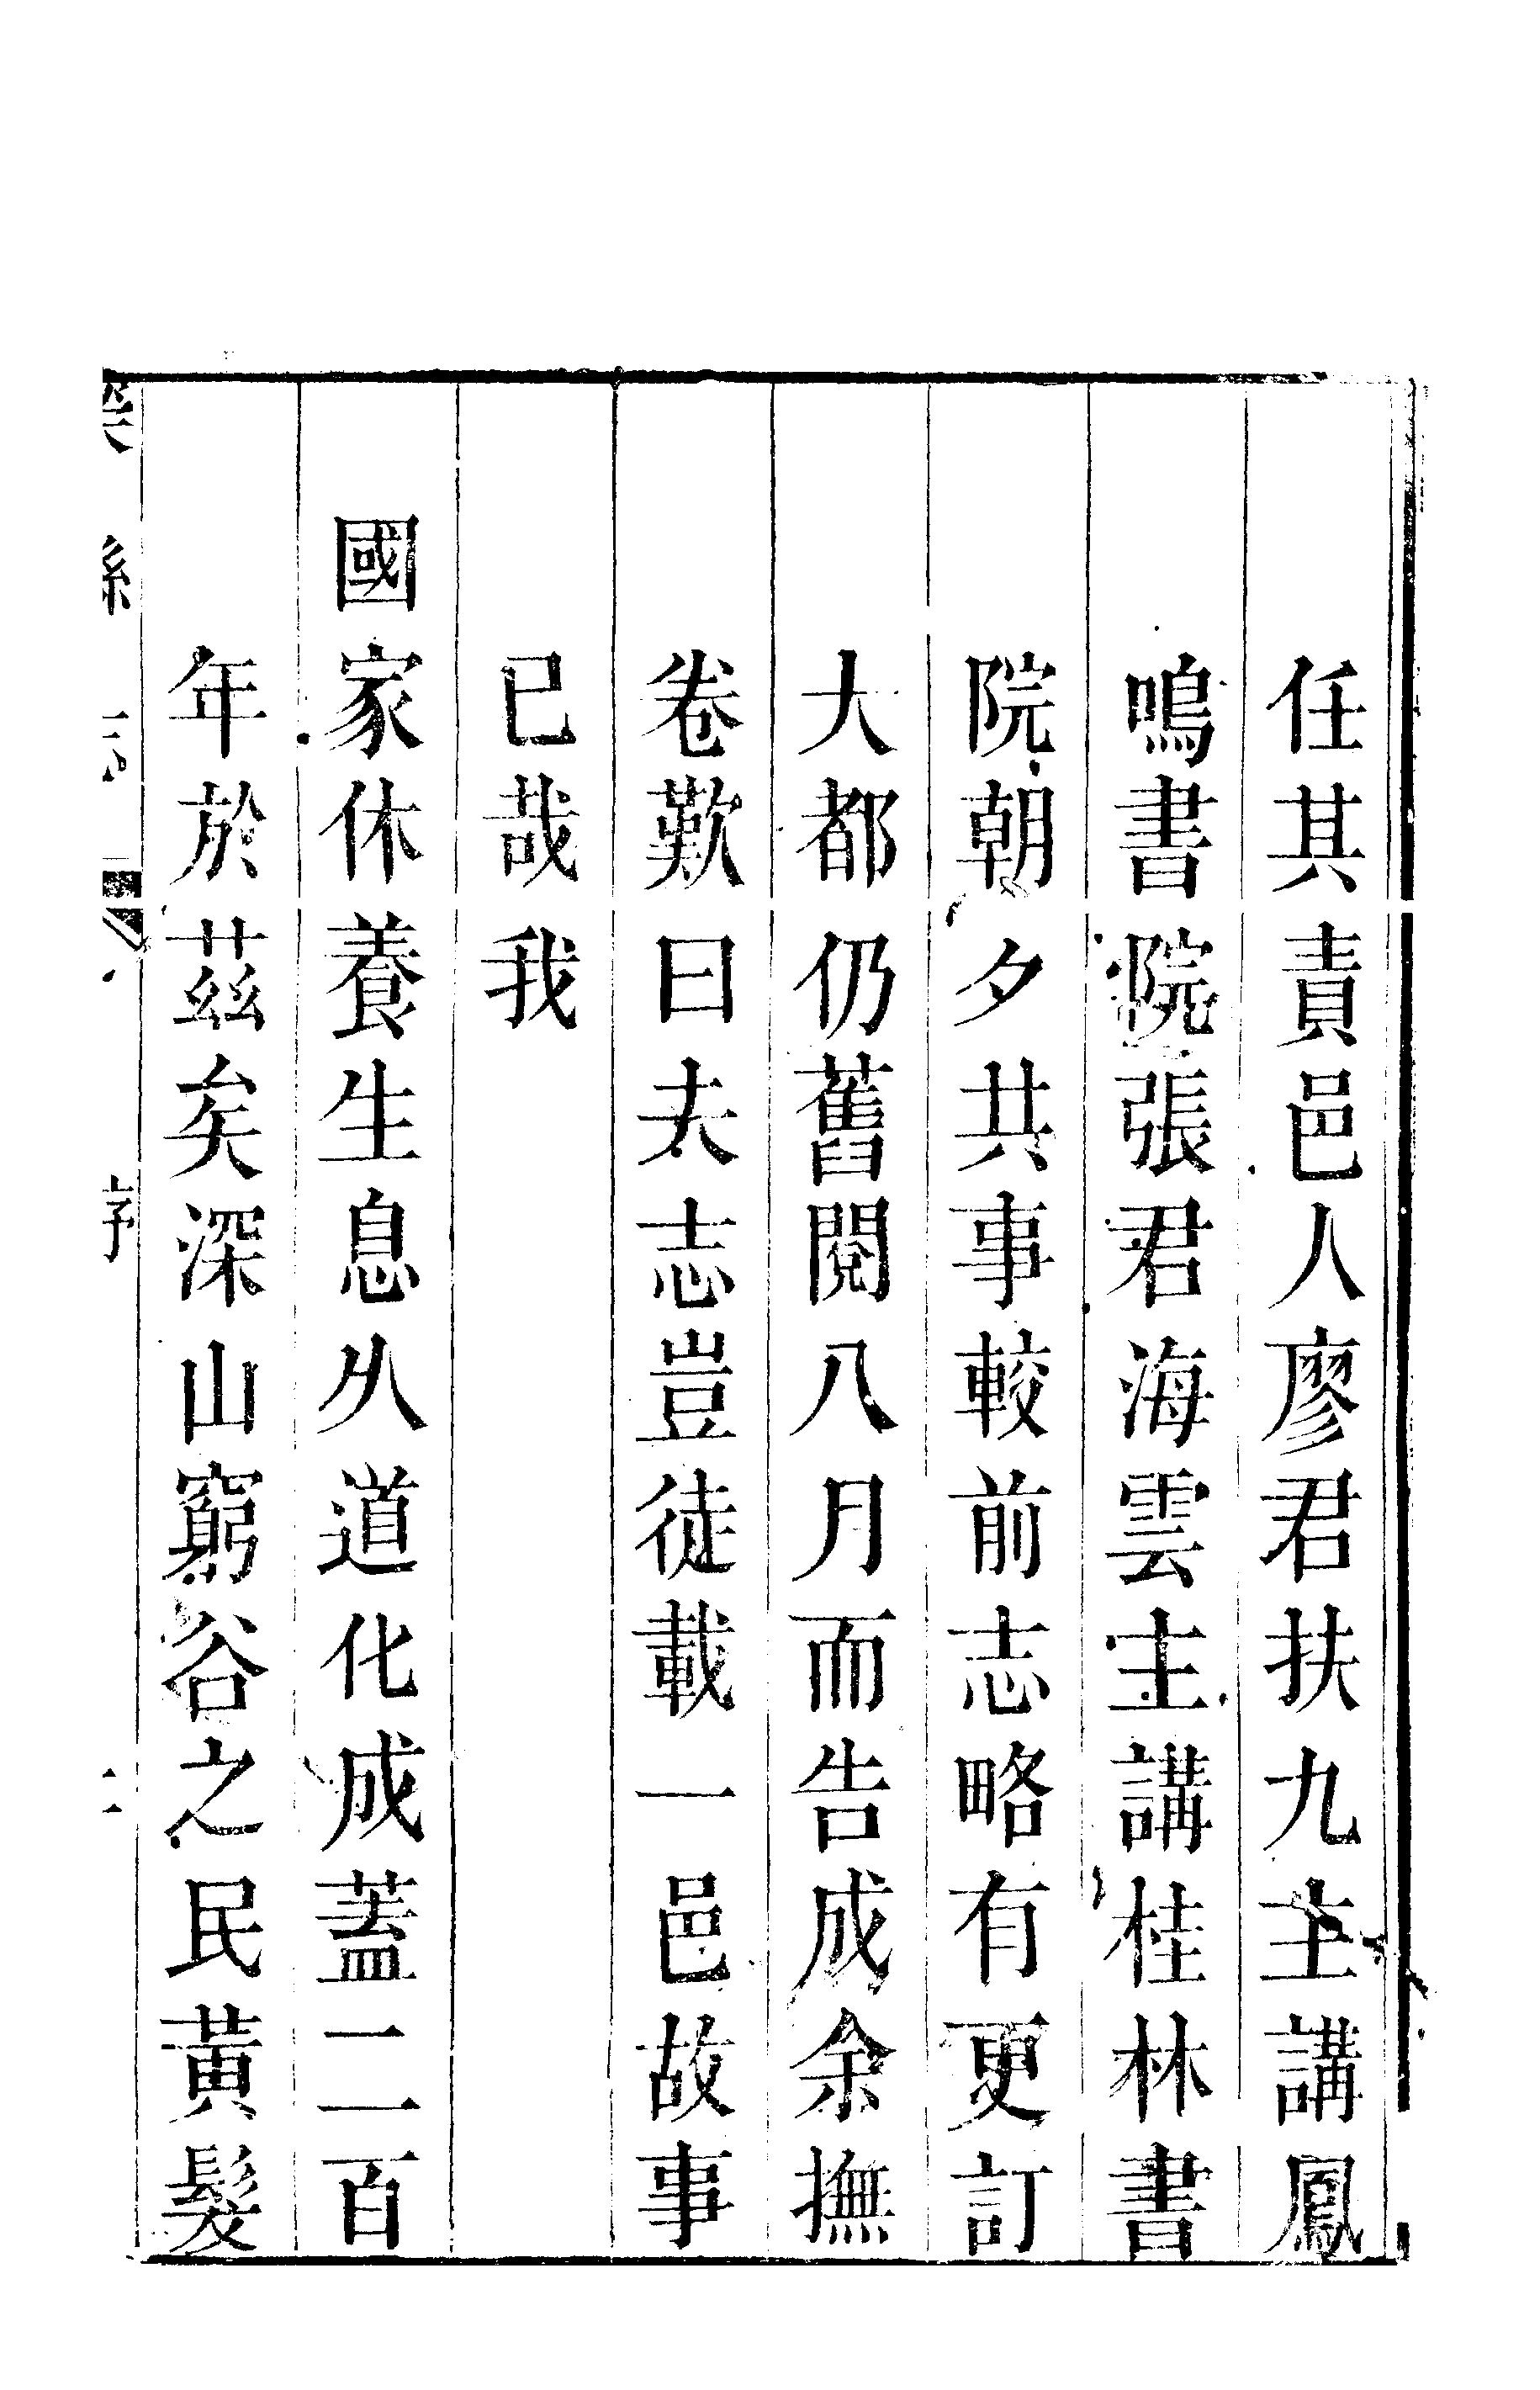 任其責邑人廖君扶九主講鳳
鳴書院張君海雲主講桂林書
院朝夕共事較前志略有更訂
大都仍舊閱八月而告成余撫
卷歎曰夫志豈徒載一邑故事
已哉我
國家休養生息久道化成蓋二百
年於茲矣深山窮谷之民黃髮